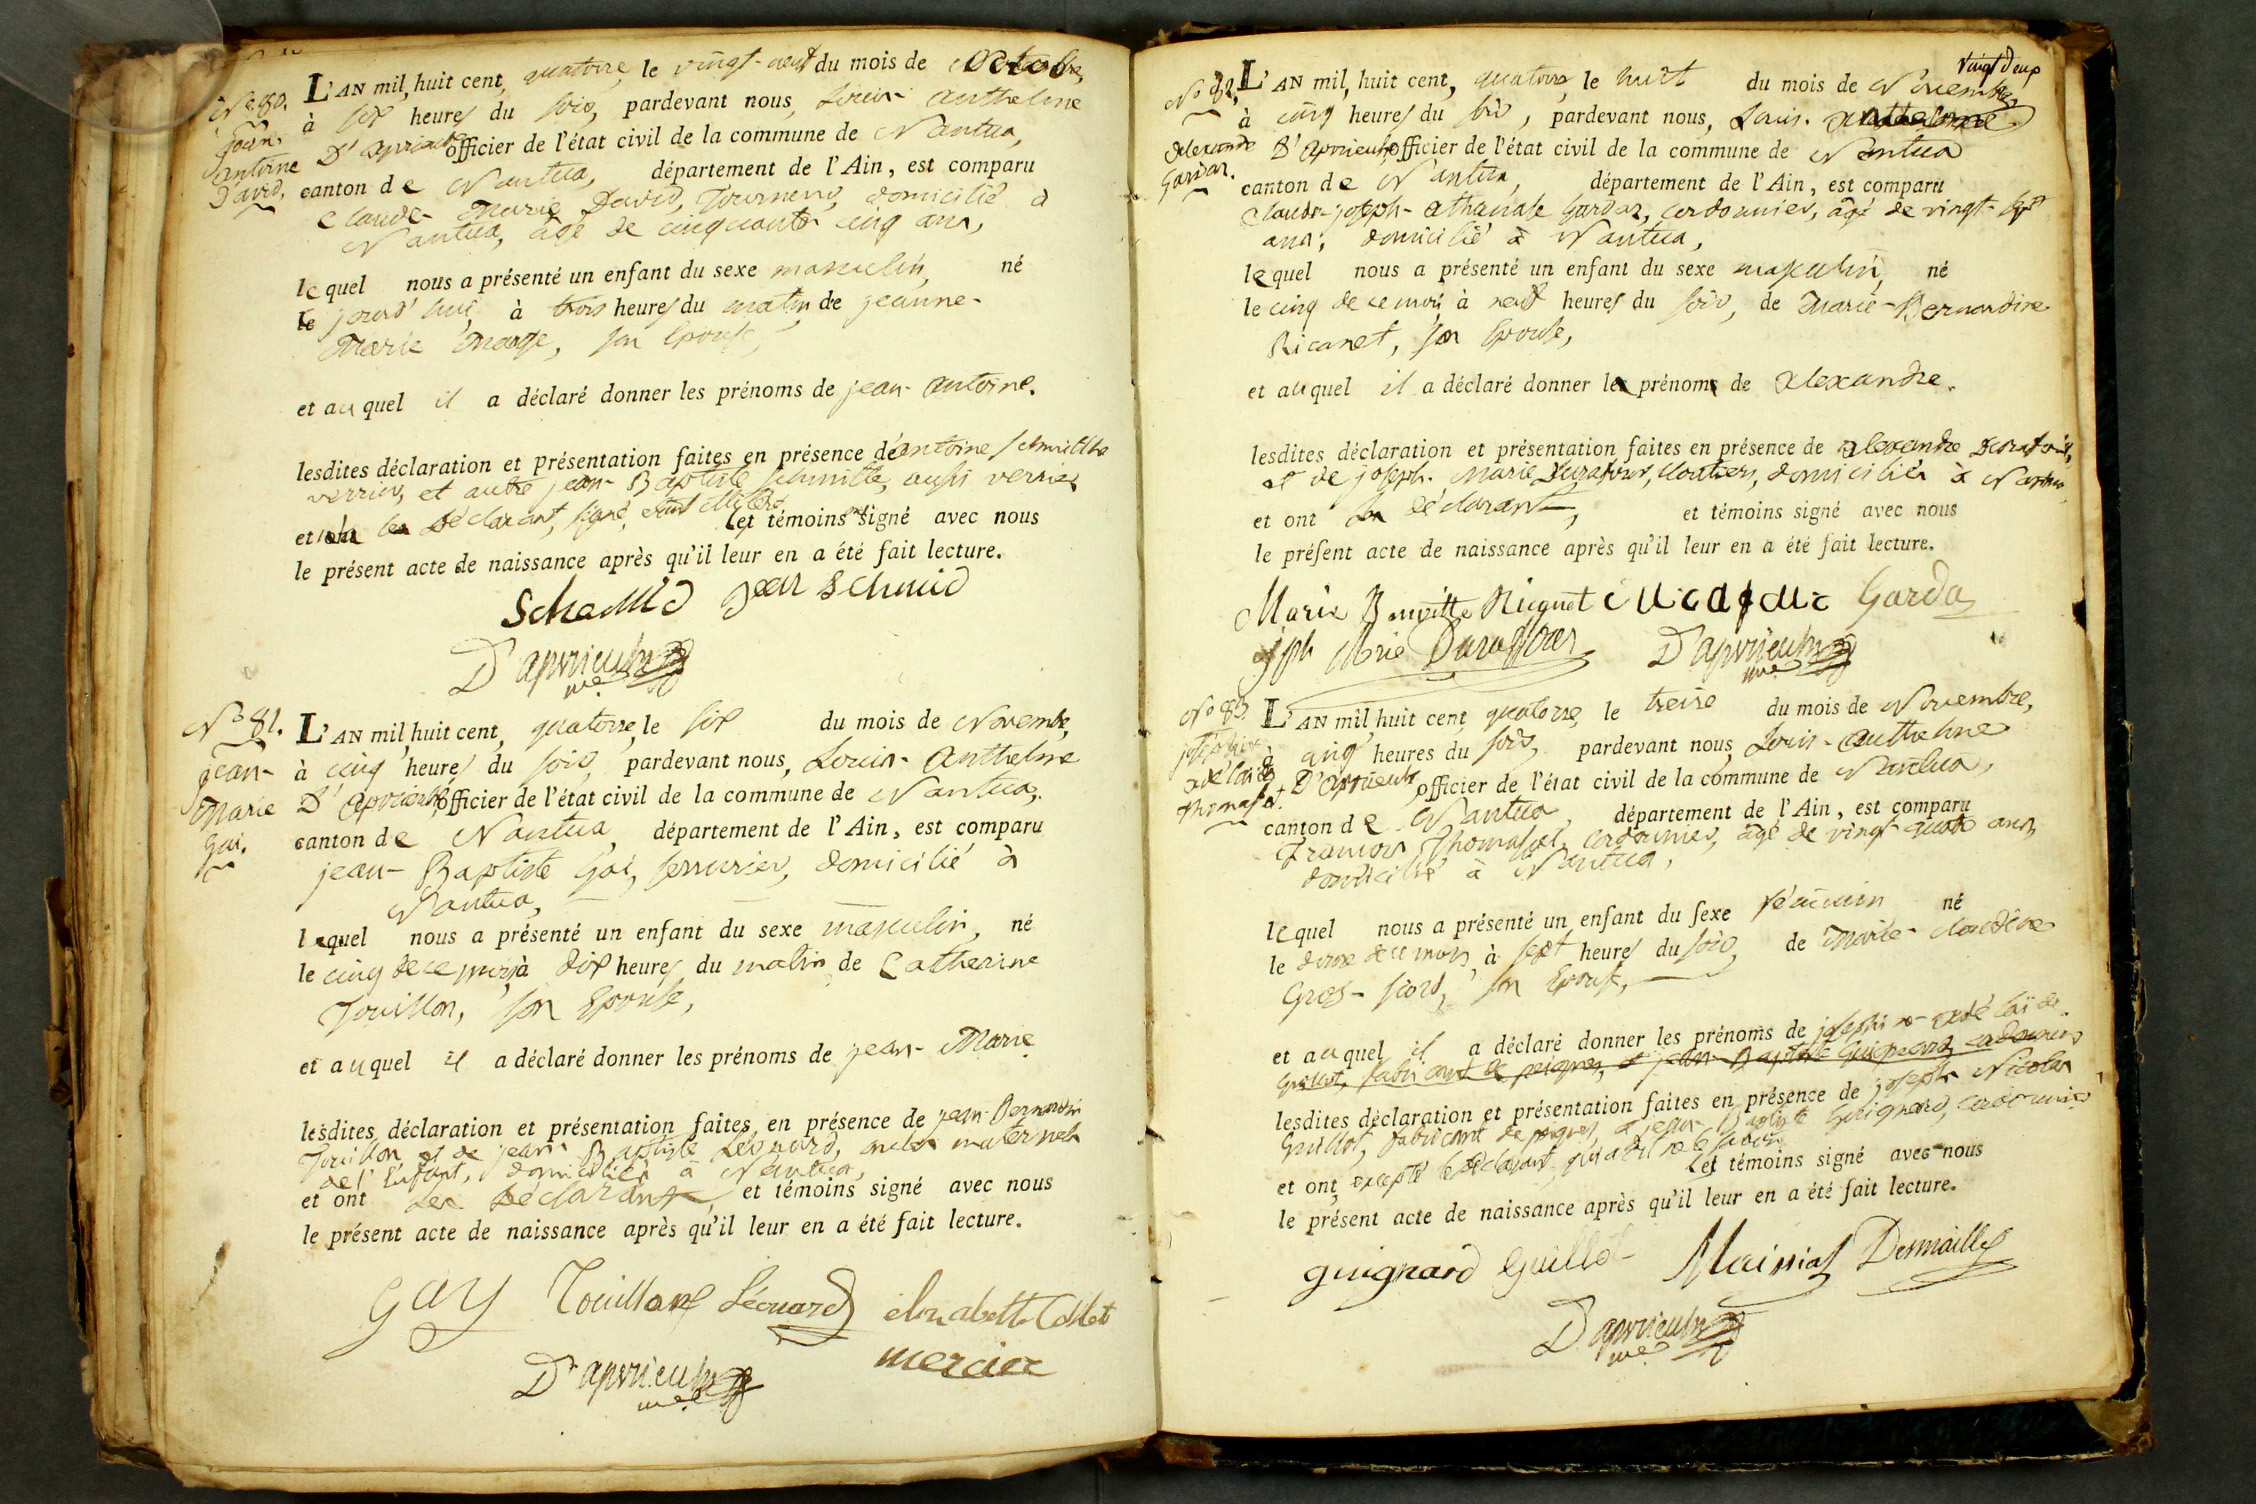 N° 80.
jean-
antoine
David.
L'AN mil huit cent quatorze le vingt-neuf du mois de octobre,
à six heures du soir, pardevant nous, Louis-Anthelme
D'apvrieulx officier de l'état civil de la commune de Nantua,
canton de Nantua, département de l'Ain, est comparu
Claude-Marie David, Tourneur, domicilié à
Nantua, âgé de cinquante cinq ans,
lequel nous a présenté un enfant du sexe masculin, né
le jourd'hui à trois heures du matin de jeanne-
Marie son Epouse,
et auquel il a déclaré donner les prénoms de jean-antoine.
lesdites déclaration et présentation faites en présence de antoine
verrier, et autre jean-Baptiste Schmitte, aussi verrier
et le Déclarant, signé, étant illitéré, Les témoins ont signé avec nous
le présent acte de naissance après qu'il leur en a été fait lecture.
jean Schmid
D'apvrieulx
me.
N° 81.
jean-
Marie
Gai.
L'AN mil huit cent quatorze, le six du mois de Novembre,
à cinq heures du soir, pardevant nous, Louis-Anthelme
D'apvrieulx, officier de l'état civil de la commune de Nantua,
canton de Nantua département de l'Ain, est comparu
jean-Baptiste Gai, serrurier, domicilié à
Nantua,
lequel nous a présenté un enfant du sexe masculin, né
le cinq de ce mois, à dix heures du matin de Catherine
Touillon, son Epouse,
et auquel il a déclaré donner les prénoms de jean-Marie
lesdites déclaration et présentation faites en présence de jean-Bernardin
Touillon et de jean-Baptiste Léonard, oncles maternels
de l'Enfant, domiciliés à Nantua,
et ont les Déclarant, et témoins signé avec nous
le présent acte de naissance après qu'il leur en a été fait lecture.
Gay Touillon Léonard elisabette Collet
mercier
D'apvrieulx
me.
Vingt Deux
N° 82.
Alexandre
Gardaz.
L'AN mil huit cent, quatorze, le huit du mois de Novembre,
à cinq heures du soir, pardevant nous, Louis-Anthelme
D'apvrieulx, officier de l'état civil de la commune de Nantua
canton de Nantua, département de l'Ain, est comparu
Claude-joseph-athanase Gardaz, cordonnier, âgé de vingt-sept
ans, domicilié à Nantua,
lequel nous a présenté un enfant du sexe masculin, né
le cinq de ce mois à neuf heures du soir, de Marie-Bernardine
Ricanet, son Epouse,
et auquel il a déclaré donner les prénoms de Alexandre.
lesdites déclaration et présentation faites en présence de Alexandre
et de joseph-Marie cloutiers, domiciliés à Nantua,
et ont les déclarant, et témoins signé avec nous
le présent acte de naissance après qu'il leur en a été fait lecture.
Marie Garda
jph Marie
D'apvrieulx
me.
N° 83.
joséphine
adélaïde
Thomasset.
L'AN mil huit cent quatorze, le treize du mois de Novembre,
à cinq heures du soir, pardevant nous Louis-Anthelme
D'apvrieulx officier de l'état civil de la commune de Nantua,
canton de Nantua, département de l'Ain, est comparu
François Thomasset, cordonnier, âgé de vingt-quatre ans,
domicilié à Nantua,
lequel nous a présenté un enfant du sexe féminin né
le douze de ce mois, à sept heures du soir, de Marie-Claudine
son Epouse,
et auquel il a déclaré donner les prénoms de joséphine-adélaïde.
Guillot, fabricant de peignes, et jean-Baptiste Guignard, cordonnier
lesdites déclaration et présentation faites en présence de joseph Nicolas
Guillot, fabricant de peignes, et jean-Baptiste Guignard, cordonnier
et ont, excepté le déclarant, qui a dit ne le savoir Les témoins signé avec nous
le présent acte de naissance après qu'il leur en a été fait lecture.
guignard Guillot Maissiat Dermailles
D'apvrieulx
me.